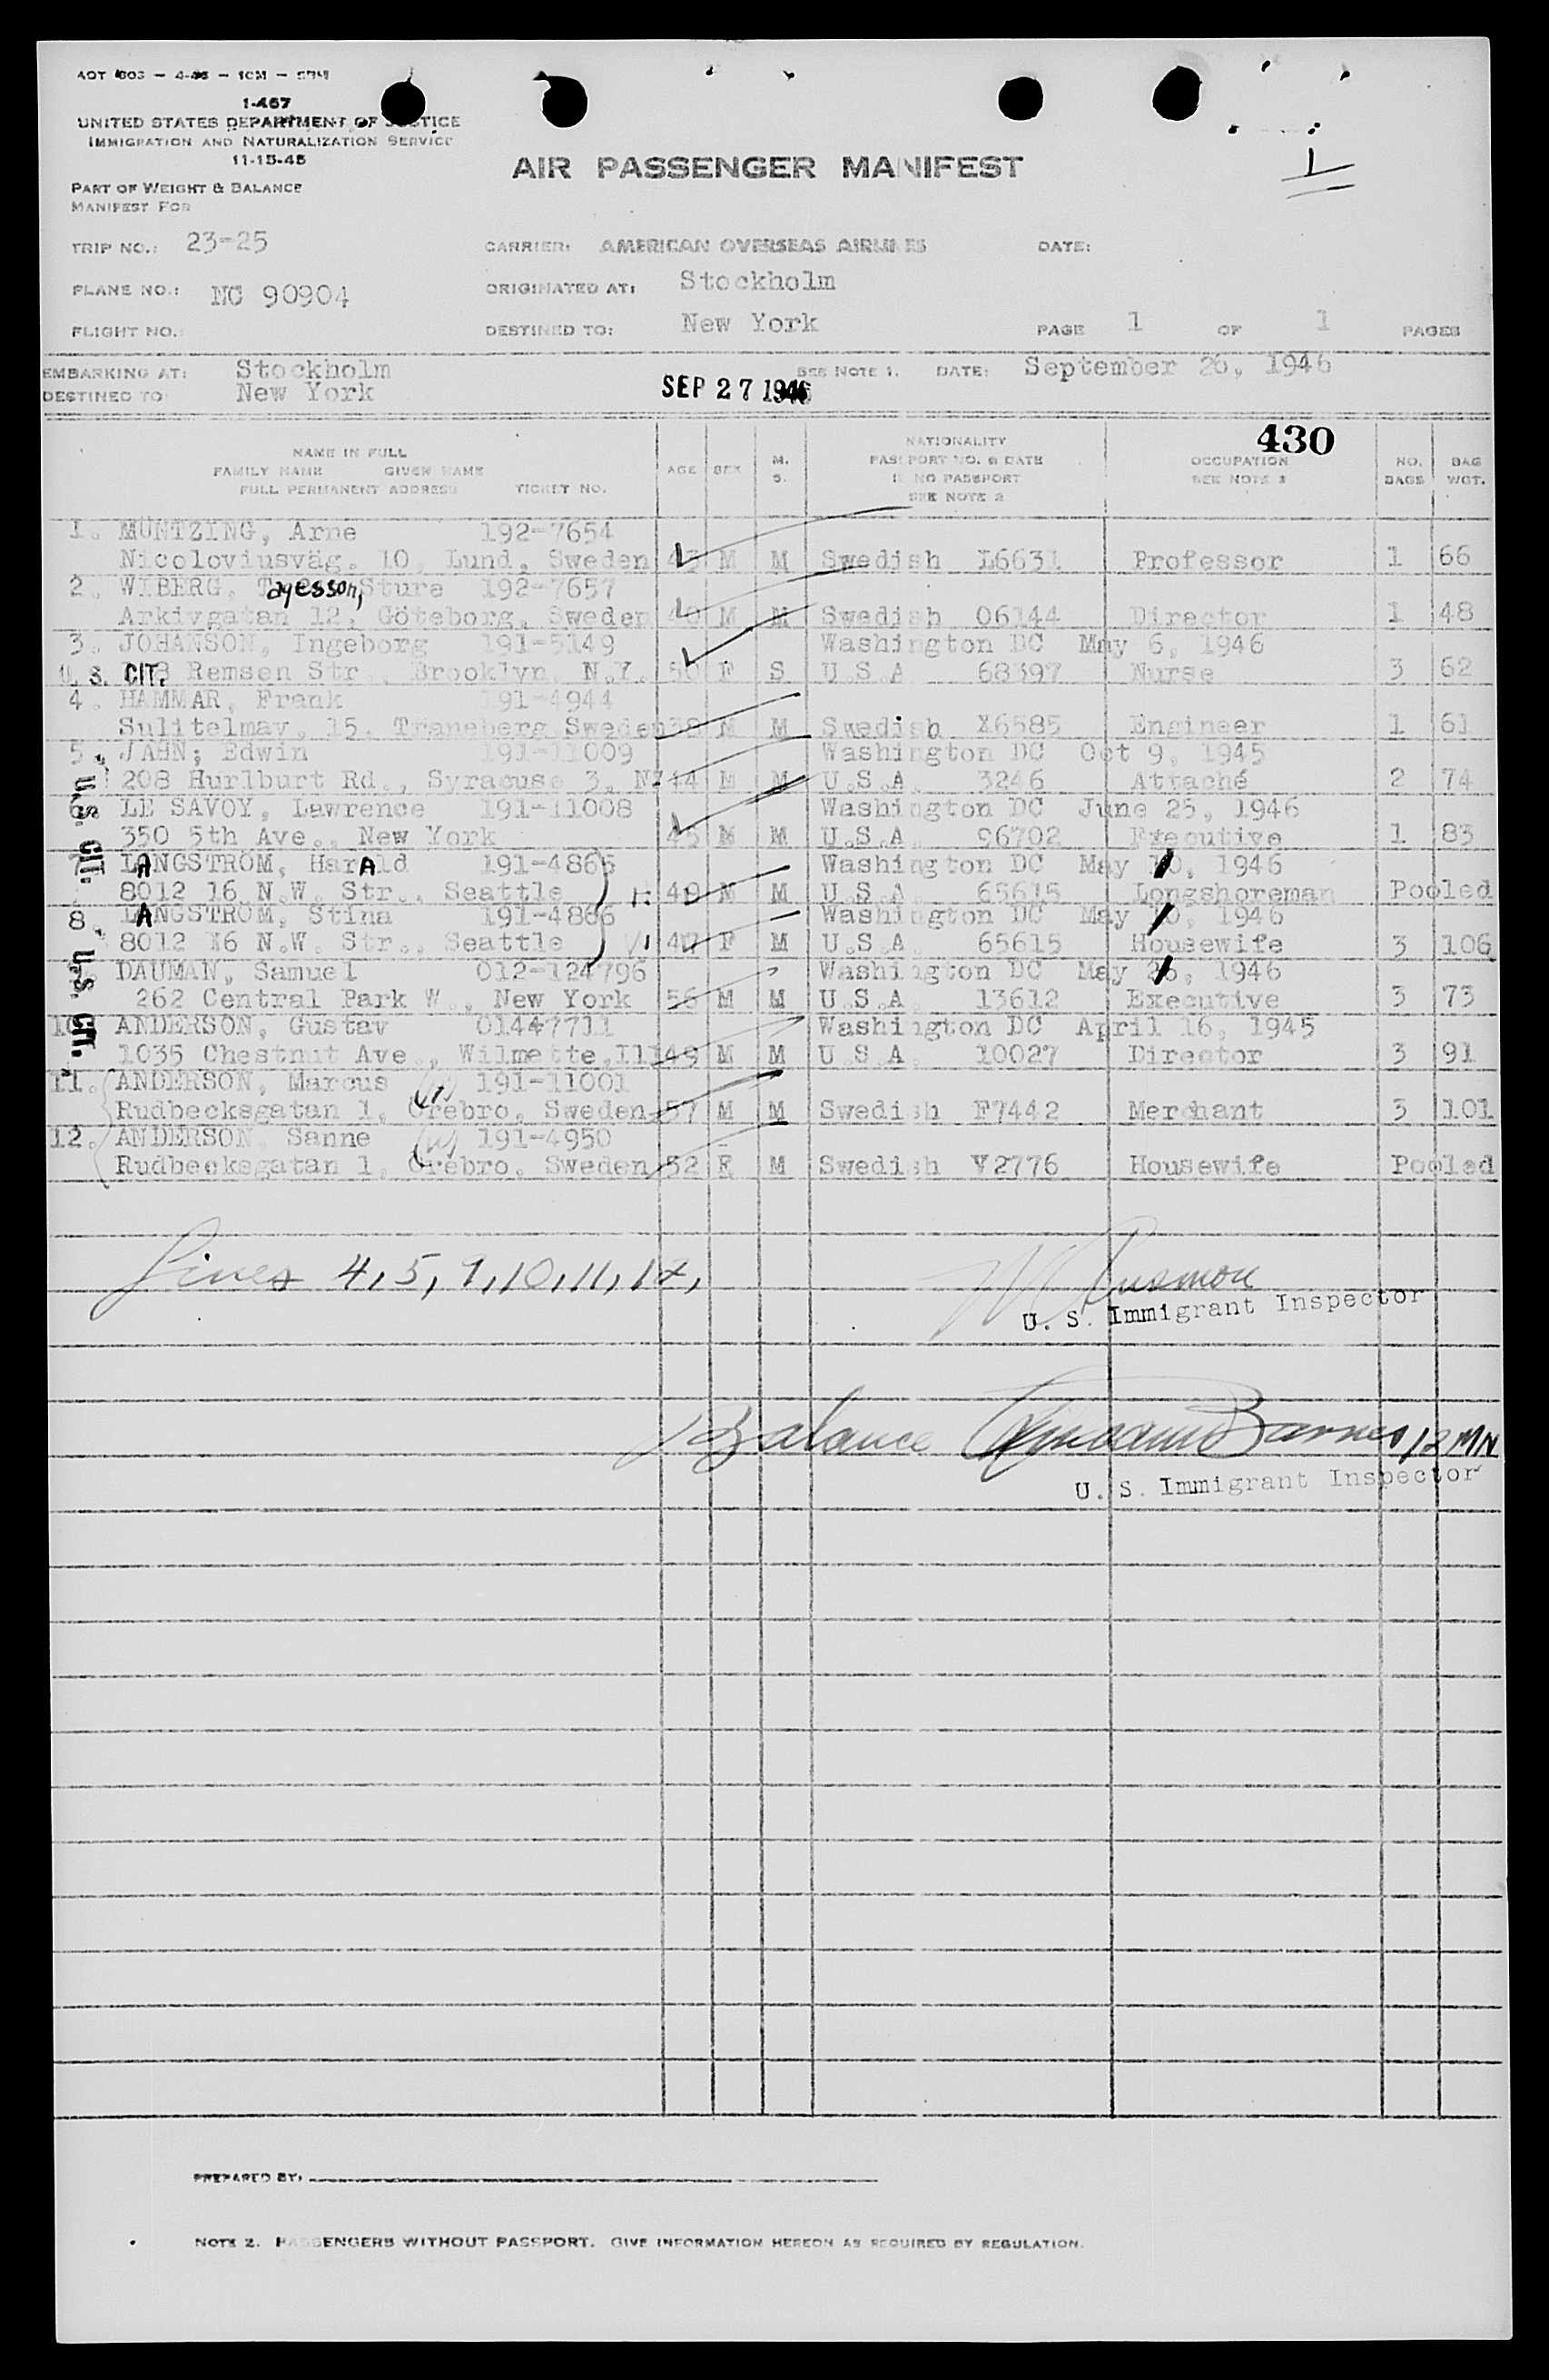 1-467
UNITED STATES DEPARTMENT OF JUSTICE
IMMIGRATION AND NATURALIZATION SERVICE
11-15-45
AIR PASSENGER MANIFEST
PART OF WEIGHT & BALANCE
MANIFEST FOR
TRIP NO.: 23-25 CARRIER: AMERICAN OVERSEAS AIRLINES DATE:
PLANE NO.: NC 90904 ORIGINATED AT: Stockholm
FLIGHT NO.: DESTINED TO: New York PAGE 1 OF 1 PAGES
EMBARKING AT: Stockholm SEE NOTE 1. DATE: September 26, 1946
DESTINED TO New York SEP 27 1946
430
NAME IN FULL
FAMILY NAME GIVEN NAME
FULL PERMANENT ADDRESS TICKET NO. AGE SEX M. S. NATIONALITY PASSPORT NO. & DATE IF NO PASSPORT SEE NOTE 2 OCCUPATION SEE NOTE NO. BAGS BAG WGT.
1. MÜNTZING, Arne 192-7654
Nicoloviusväg. 10, Lund, Sweden 43 M M Swedish L6631 Professor 1 66
2. WIBERG, Tagesson, Sture 192-7657
Arkivgatan 12, Göteborg, Sweden 40 M M Swedish 06144 Director 1 48
3. JOHANSON, Ingeborg 191-5149 Washington DC May 6, 1946
U. S. CIT. Remsen Str., Brooklyn, N.Y. 50 F S U S A 68397 Nurse 3 62
4. HAMMAR, Frank 191-4944
Sulitelmav, 15, Traneberg Sweden 38 M M Swedish X6585 Engineer 1 61
5. JAHN; Edwin 191-11009 Washington DC Oct 9, 1945
208 Hurlburt Rd., Syracuse 3, NY 44 M M U.S.A. 3246 Attaché 2 74
U.S. CIT.
LE SAVOY, Lawrence 191-11008 Washington DC June 25, 1946
350 5th Ave., New York 45 M M U.S.A. 96702 Executive 1 83
LANGSTROM, Harald 191-4865 Washington DC May 10, 1946
8012 16 N.W. Str., Seattle 49 M M U.S.A. 65615 Longshoreman Pooled
8. LANGSTROM, Stina 191-4866 Washington DC May 10, 1946
8012 16 N.W. Str., Seattle 47 F M U.S.A. 65615 Housewife 3 106
U.S. CIT.
DAUMAN, Samuel 012-124796 Washington DC May 26, 1946
262 Central Park W., New York 56 M M U.S.A. 13612 Executive 3 73
10. ANDERSON, Gustav 01447711 Washington DC April 16, 1945
1035 Chestnut Ave., Wilmette, Ill 49 M M U.S.A. 10027 Director 3 91
11. ANDERSON, Marcus 191-11001
Rudbecksgatan 1, Örebro, Sweden 57 M M Swedish F7442 Merchant 3 101
12. ANDERSON Sanne 191-4950
Rudbecksgatan 1, Örebro, Sweden 52 F M Swedish V2776 Housewife Pooled
Lines 4, 5, 9, 10, 11, 12,
U. S. Immigrant Inspector
Balance Barnes 12 MN
U. S. Immigrant Inspector
PREPARED BY:
NOTE 2. PASSENGERS WITHOUT PASSPORT. GIVE INFORMATION HEREON AS REQUIRED BY REGULATION.